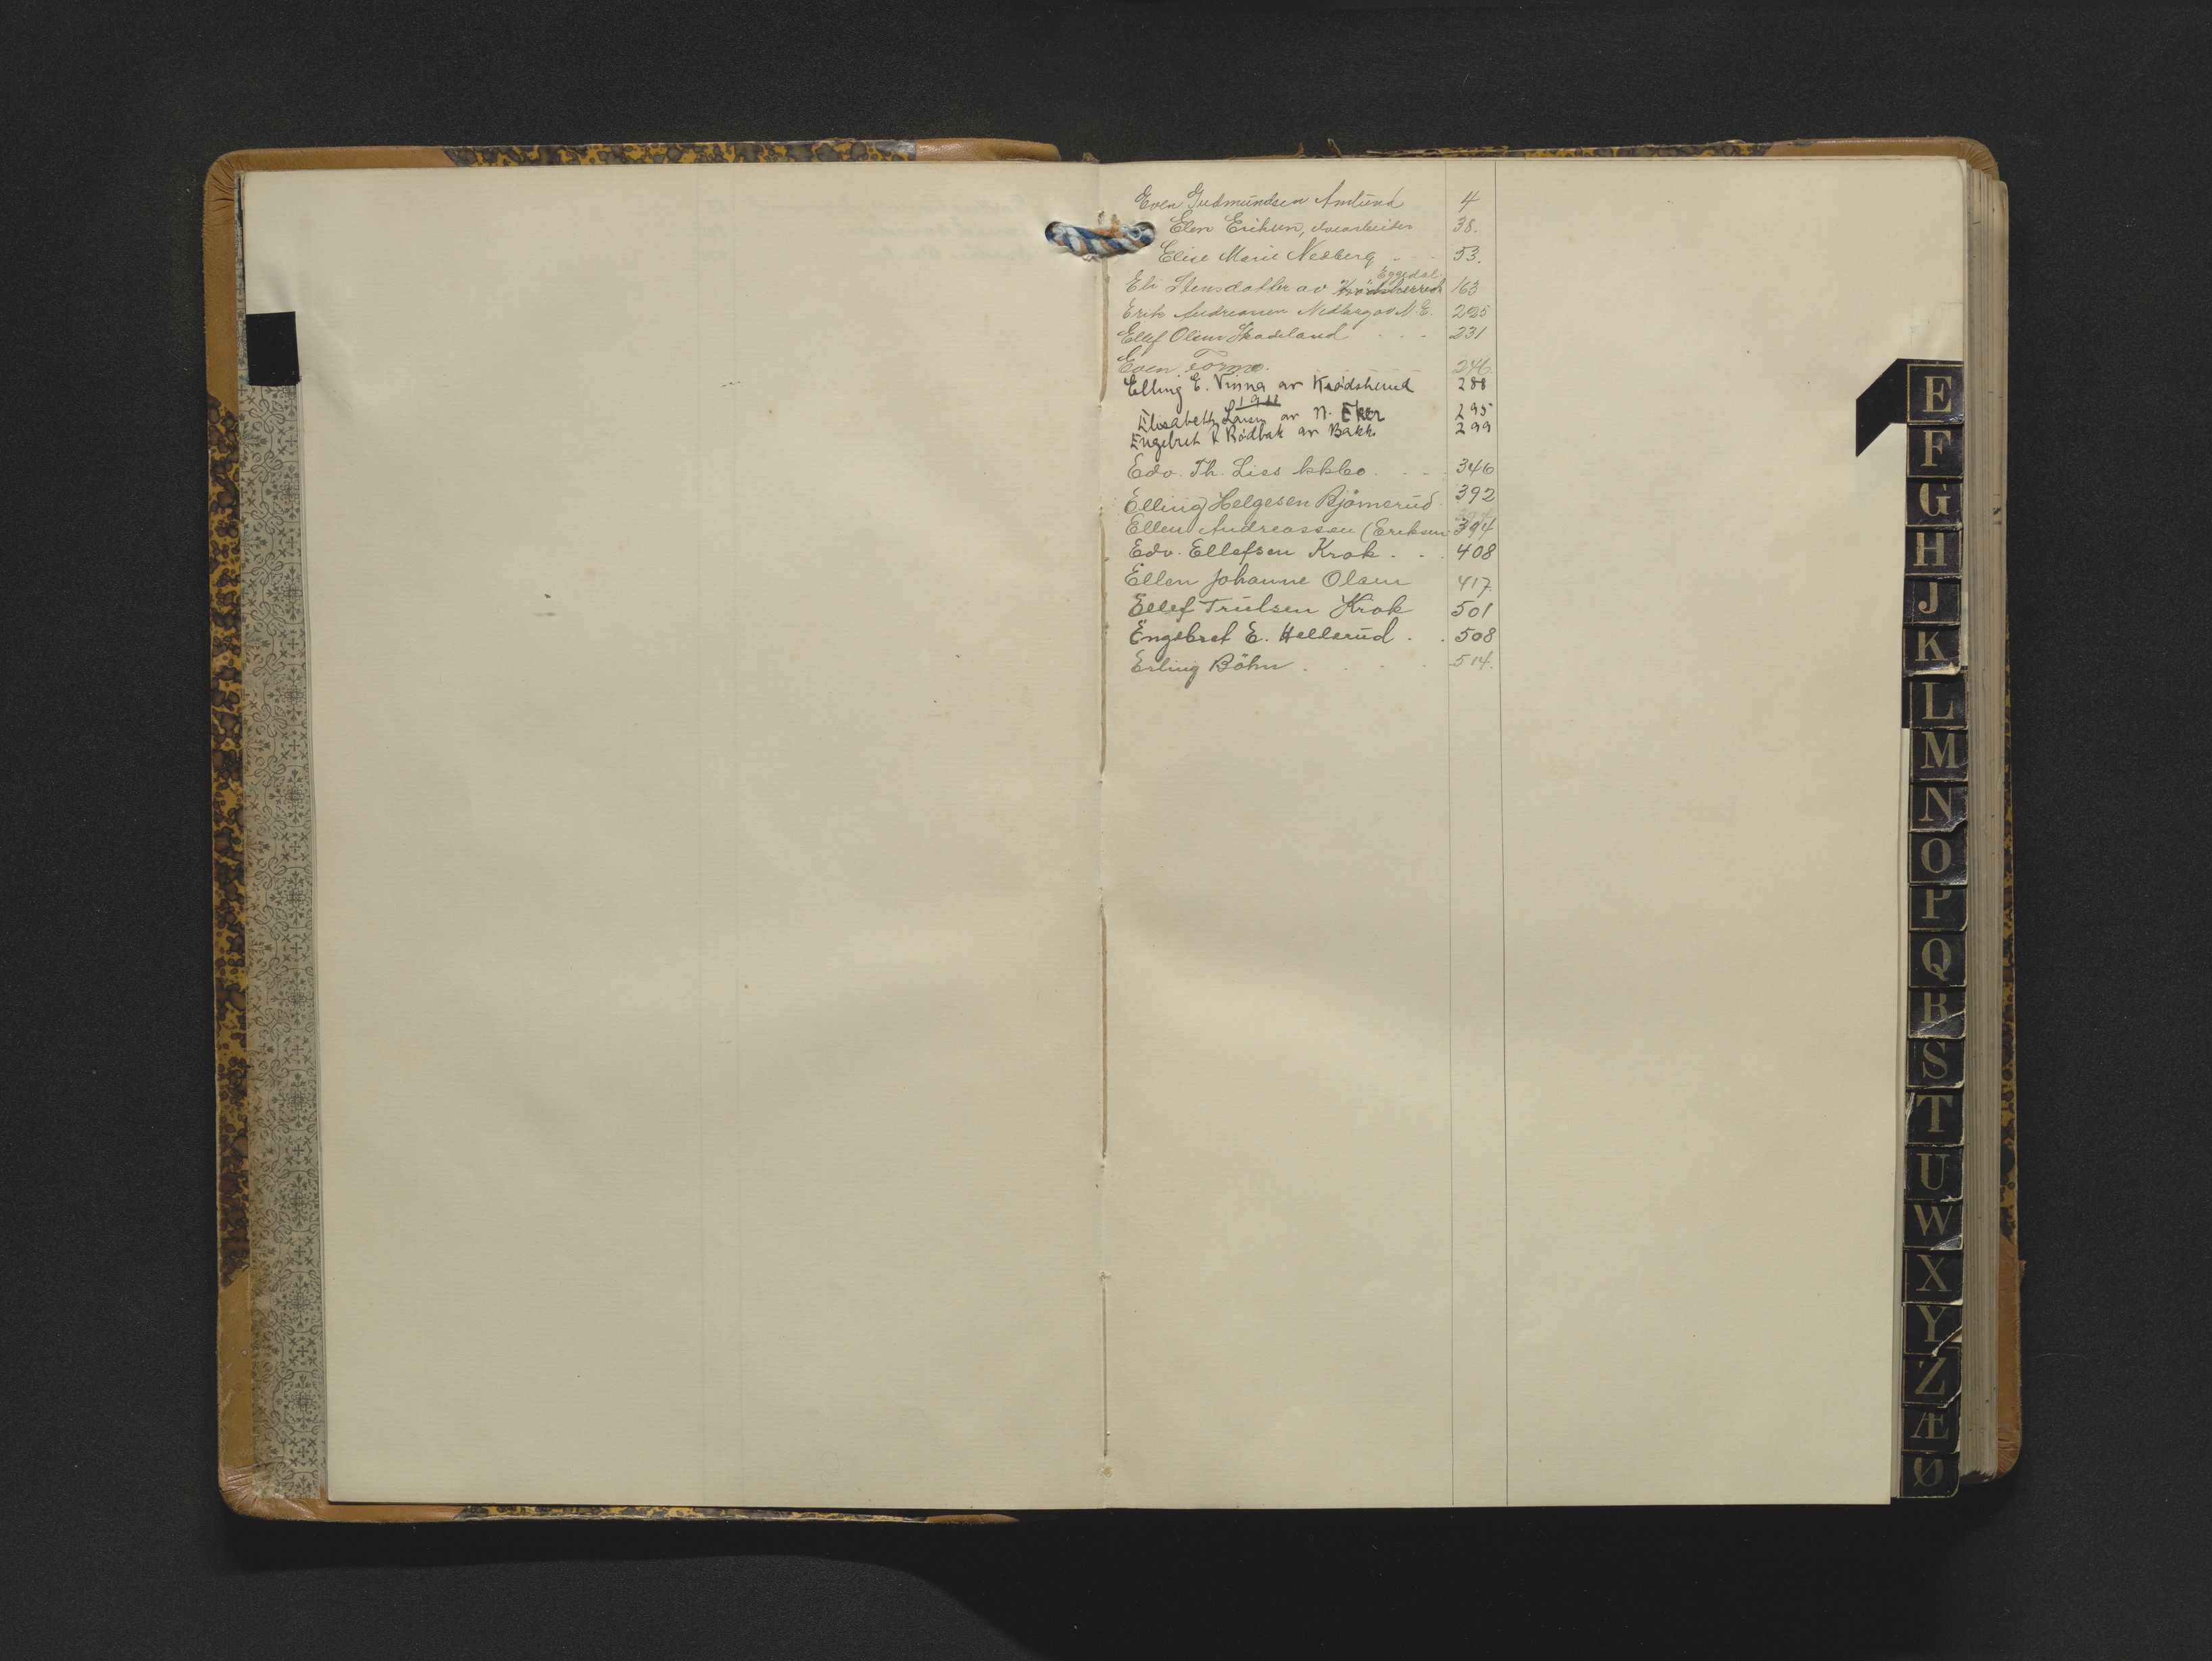 Even Gudmundsen Amlund 4
Elen Eriksen, 38.
Elise Marie Nedberg 53.
Eggedal
Eli Stensdatter av Krødsherred 163
Erik Andreassen Nedberg av N. E. 225
Ellef Olsen Skadeland 231
Even Formo. 246
Elling E. Vinna av Krødsherred 288
1911
Elisabeth Larsn av N. Eker 295
Engebret R Rødbak av Bakke 299
Edv. Th. Lies 346
Elling Helgesen Bjømerud 392
Ellen Andreassen (Eriksen 394
Edv. Ellefsen Krok 408
Ellen Johanne Olsen 417.
Ellef Trulsen Krok 501
Engebret E. Hellerud 508
Erling Böhn 514.
E
F
G
H
J
K
L
M
N
O
P
Q
R
S
T
U
W
X
Y
Z
Æ
Ø